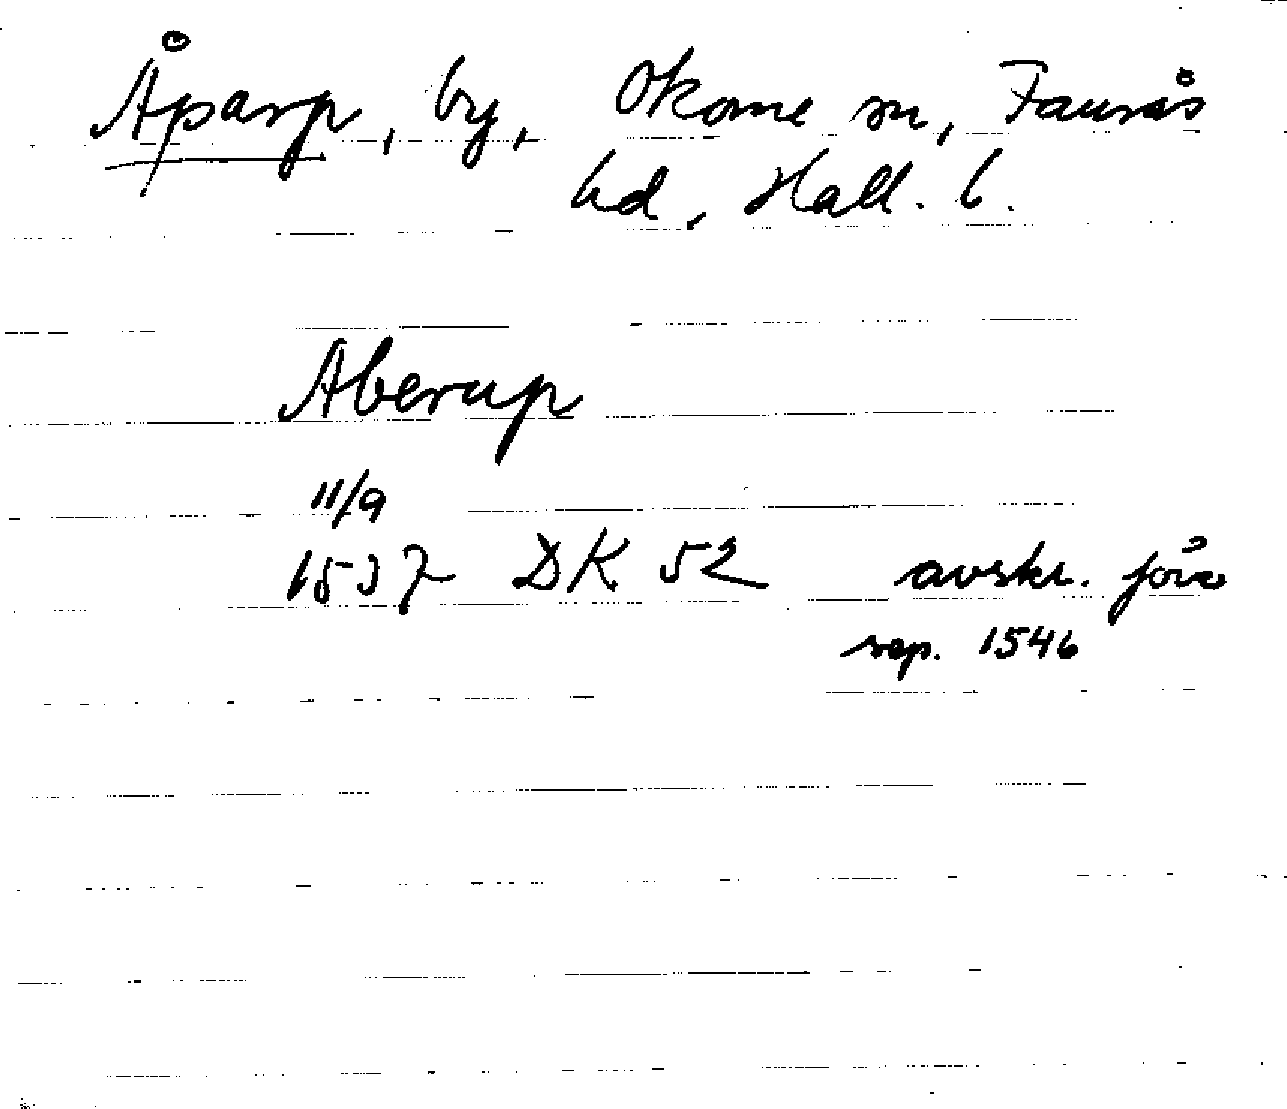 Åparp, by, Okome sn, Faurås
hd, Hall. l.
Aberup
11/9
1537 DK 52 avskr. förv
sep. 1546